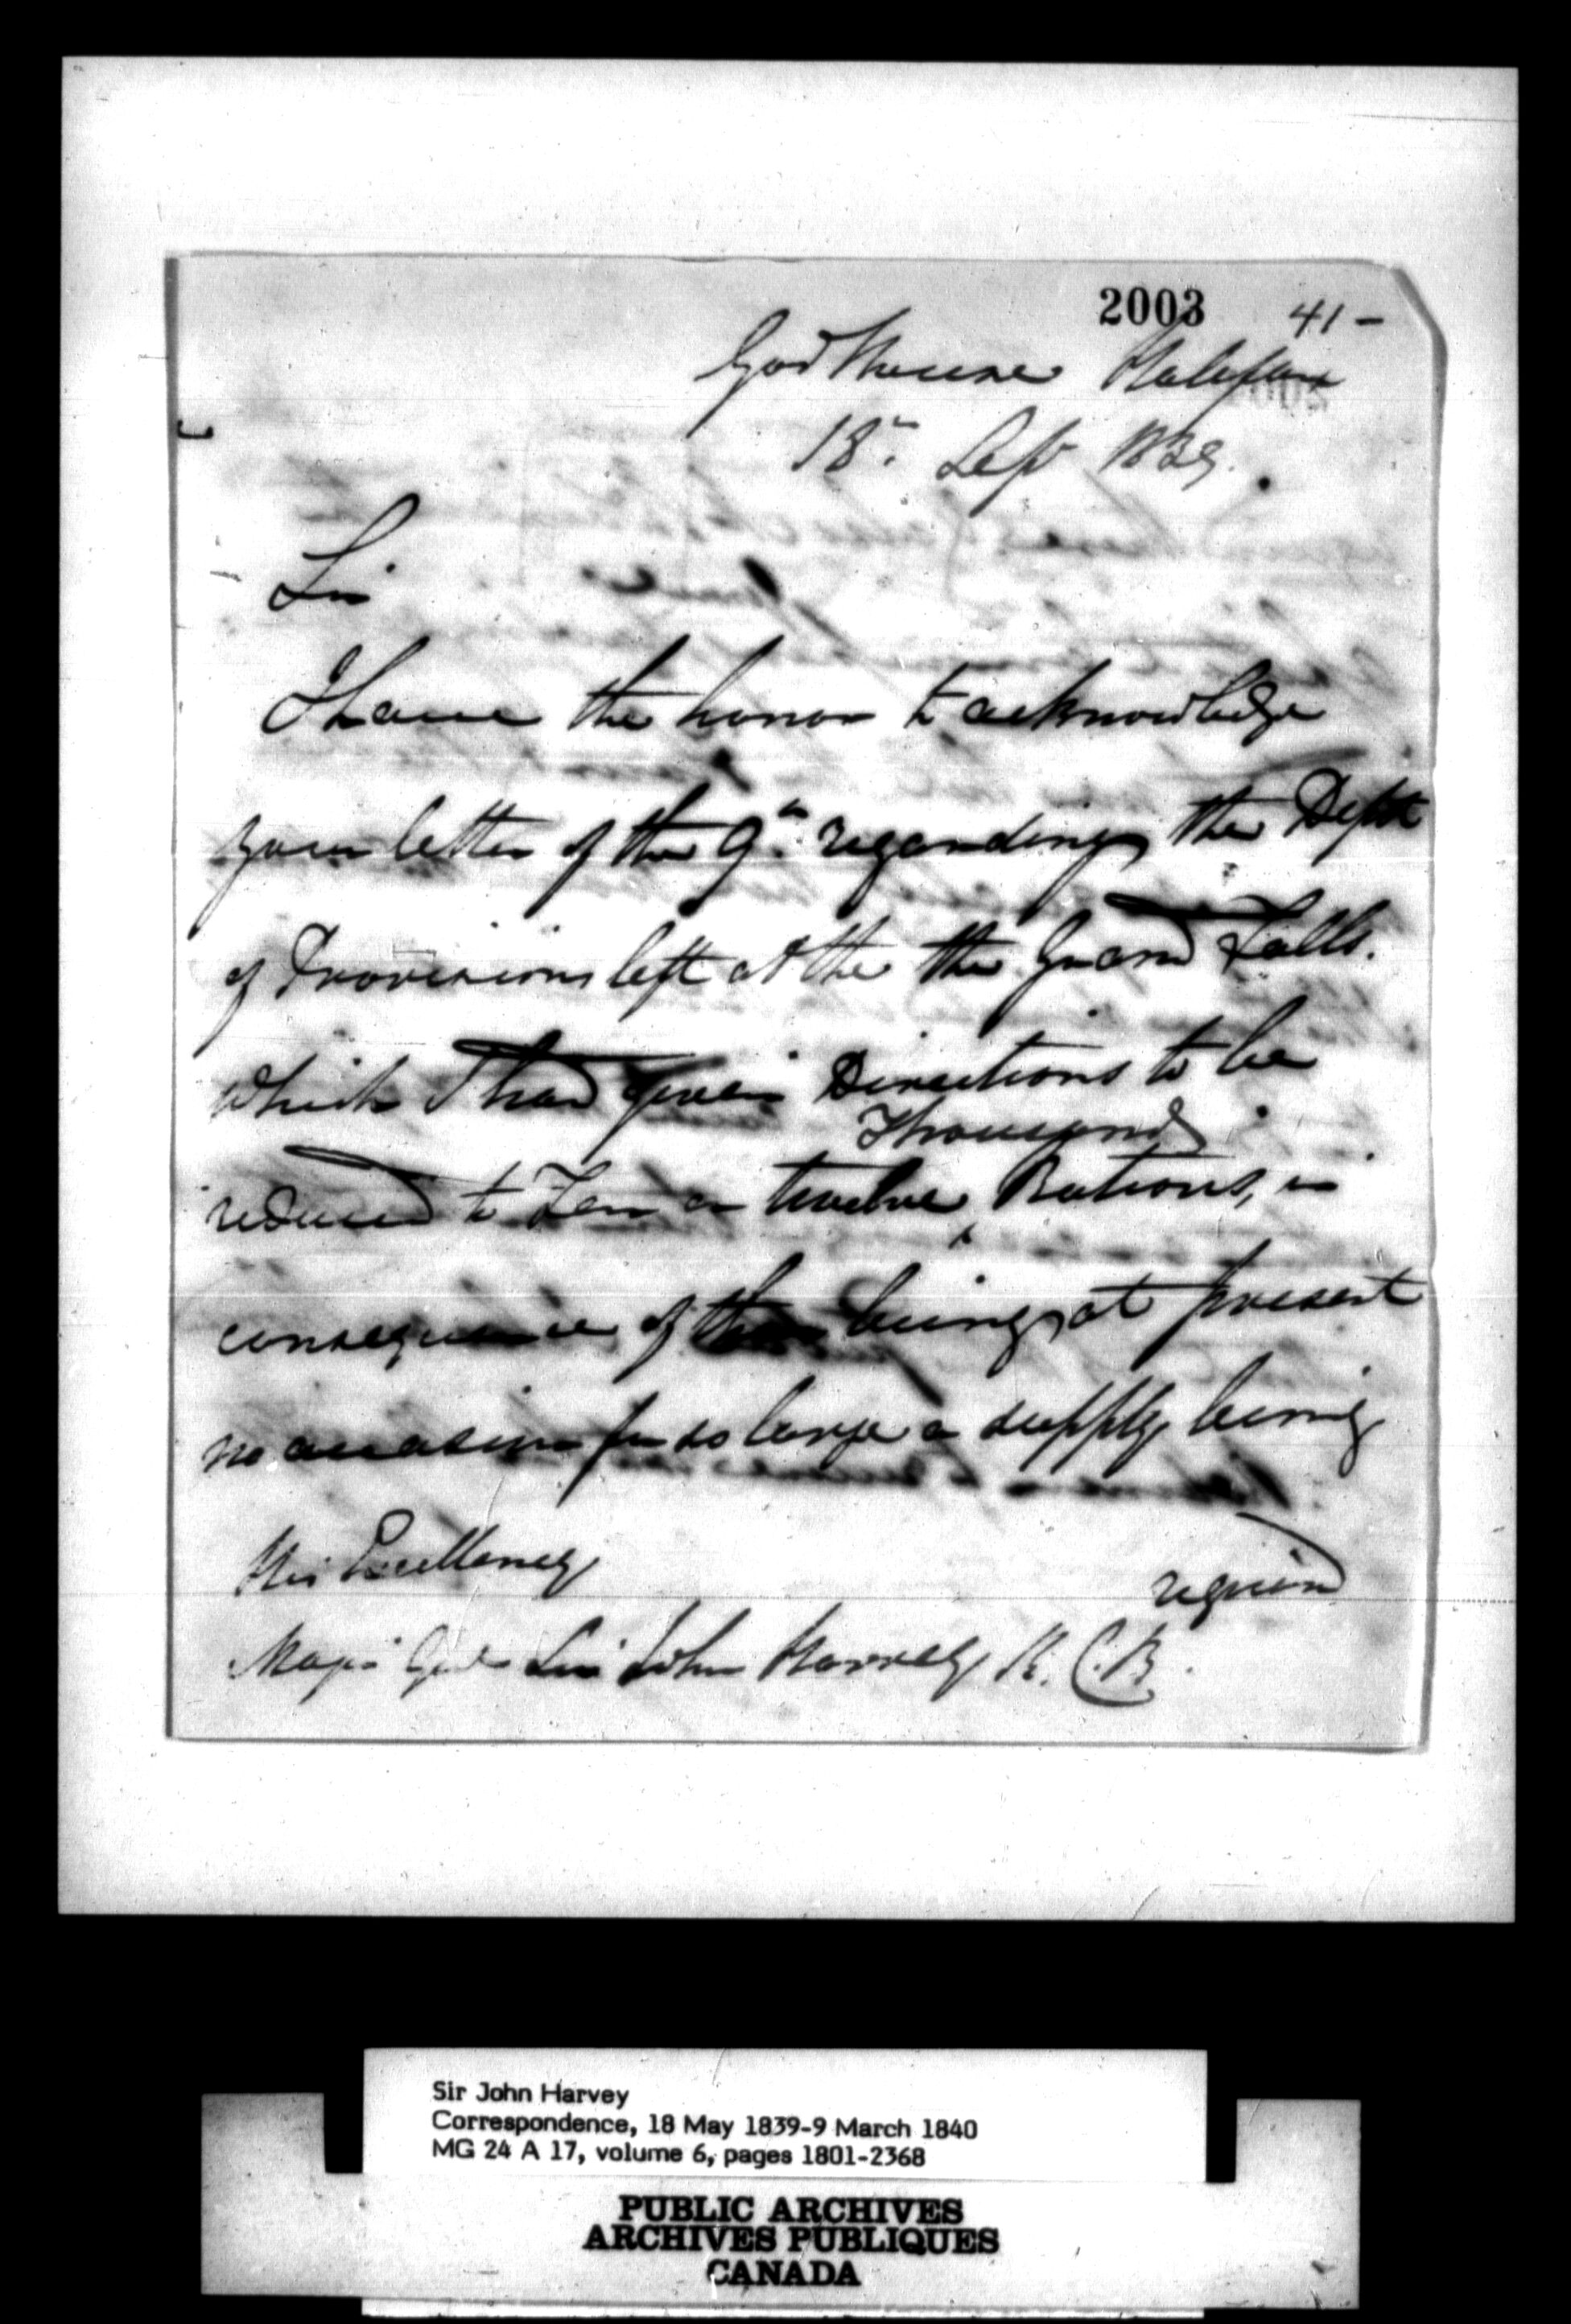 2003 41-
Gov House Halifax
18th Sept 1839.
Sir
I have the honor to acknowledge
your letter of the 9th regarding the Depôt
of Provisions left at the the Grand Falls.
which I had given Directions to be
Thousand
reduced to Ten or twelve ^ Rations, in
consequence of there being at present
no occasion for so large a supply being
required
His Excellency
Major Genl Sir John Harvey K.C.B.
Sir John Harvey
Correspondence, 18 May 1839-9 March 1840
MG 24 A 17, volume 6, pages 1801-2368
PUBLIC ARCHIVES
ARCHIVES PUBLIQUES
CANADA